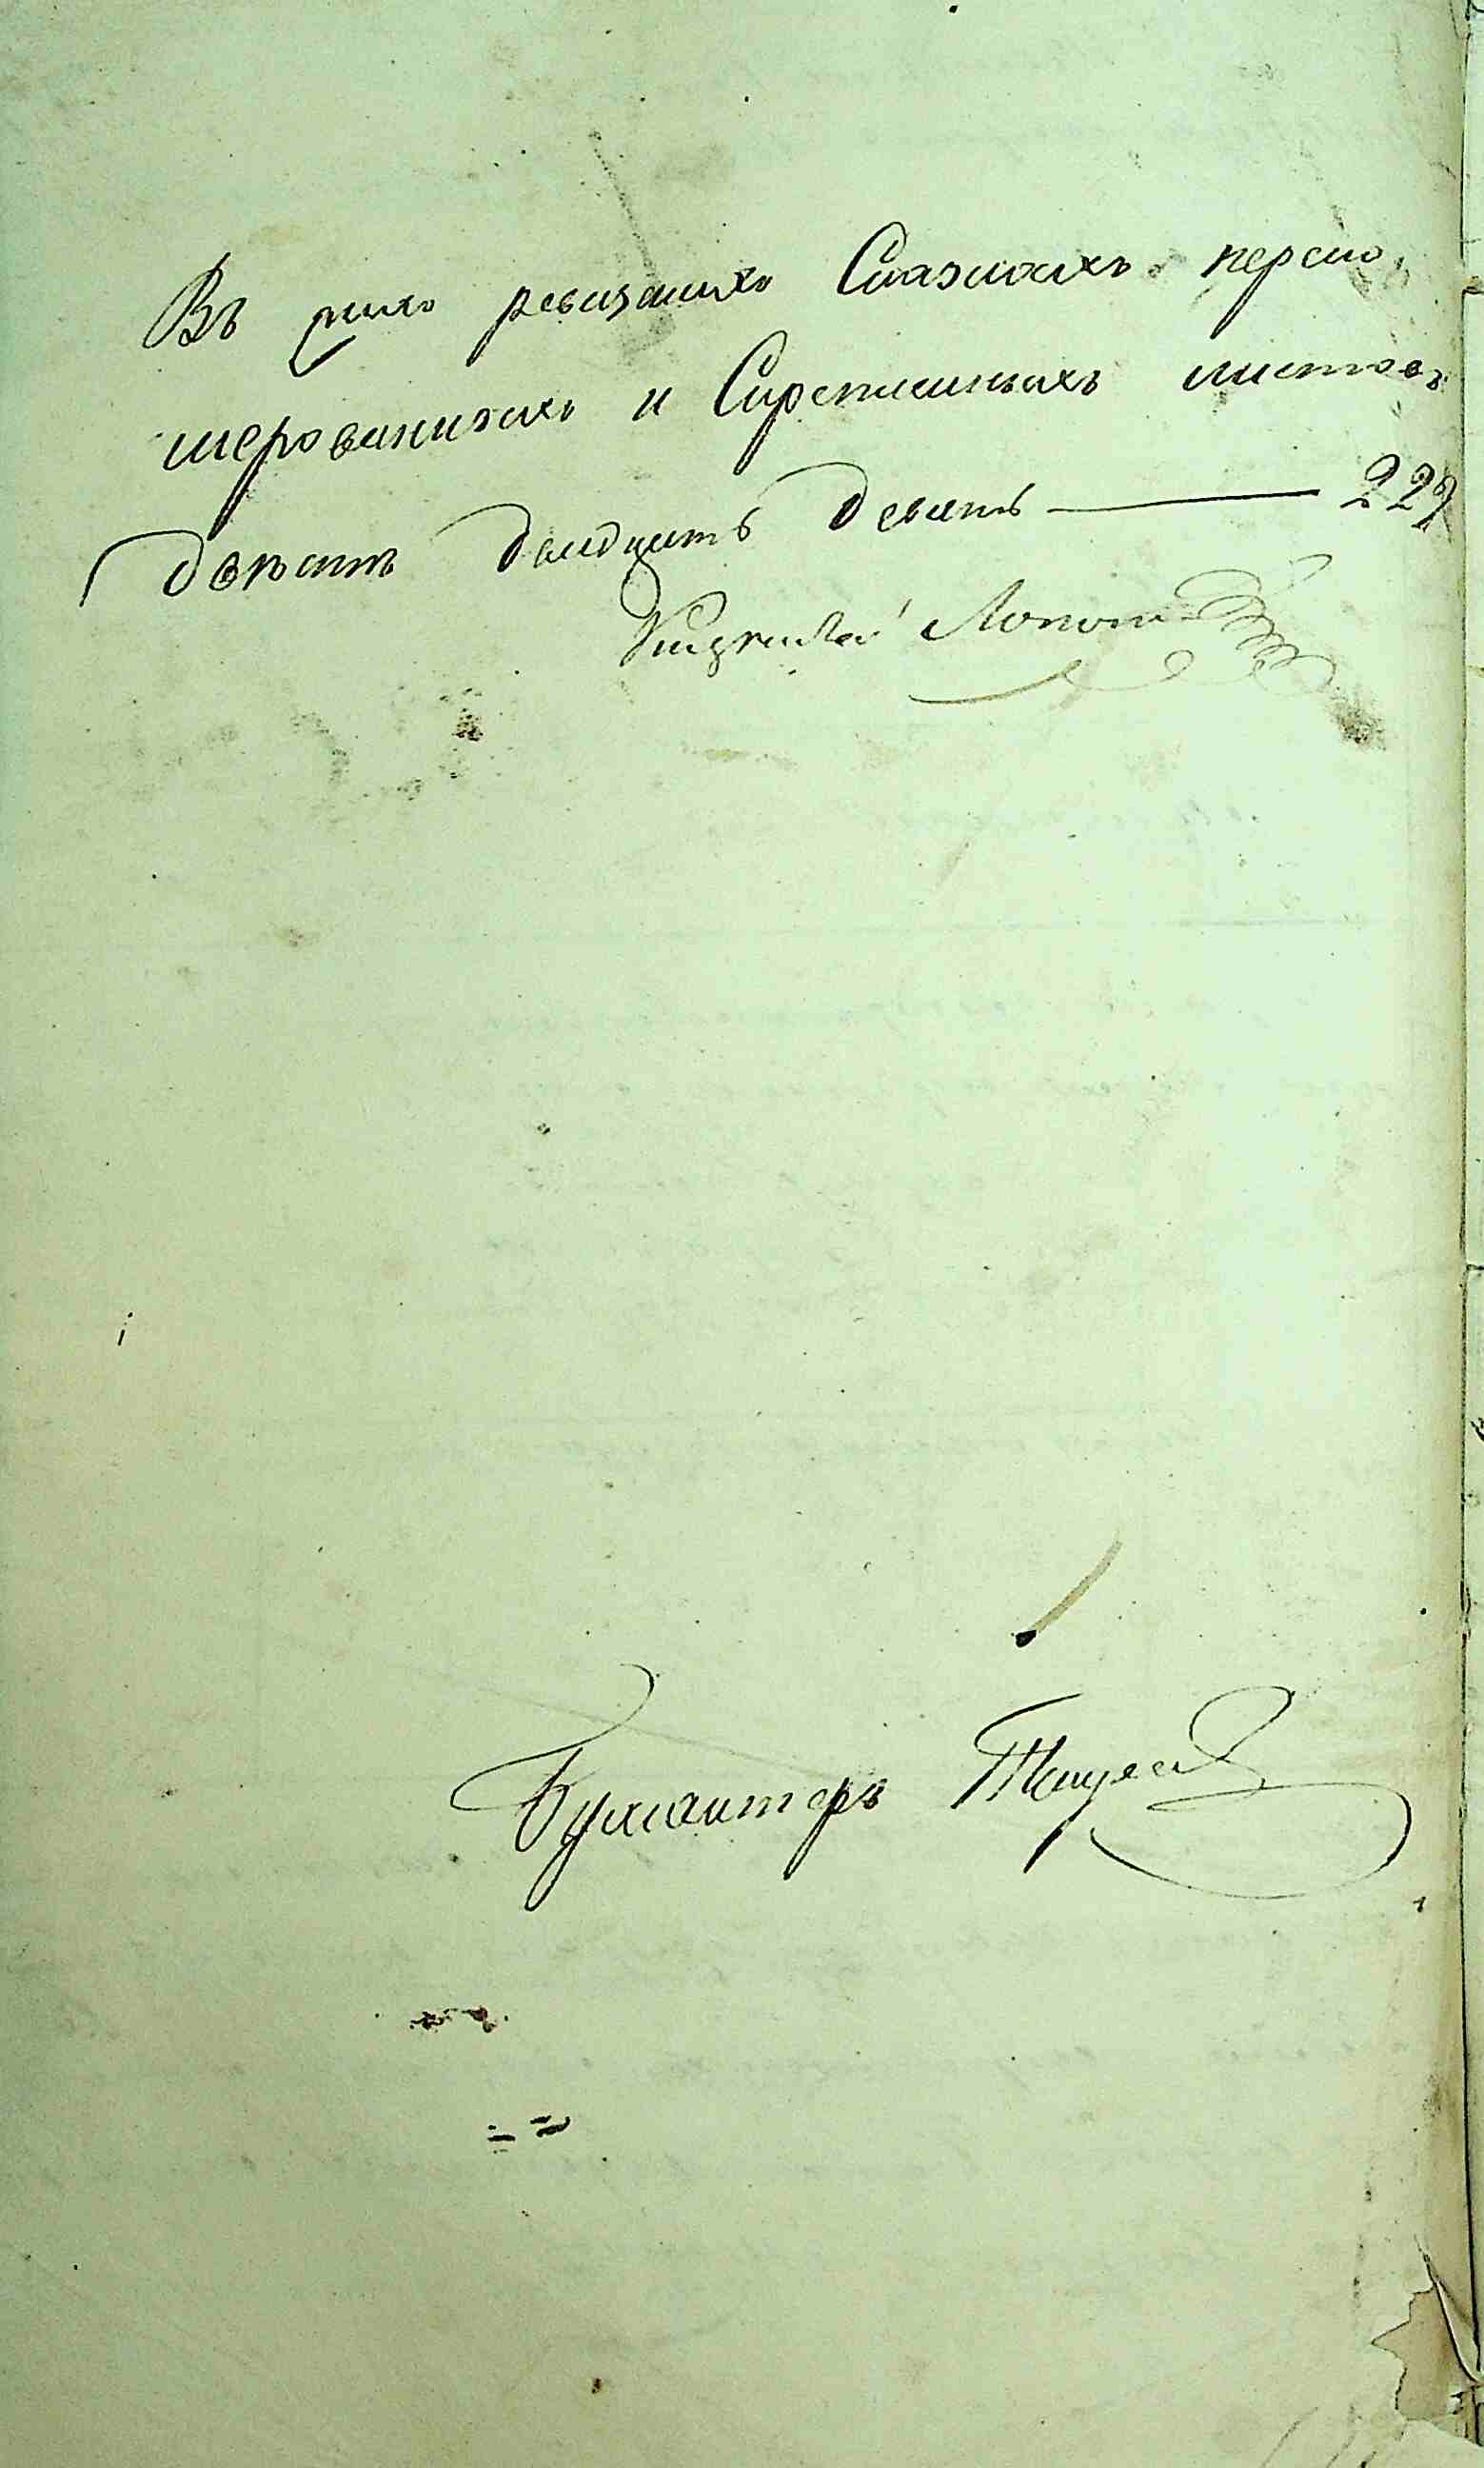 Въ сихъ ревизскихъ Сказкахъ перену,
мерованныхъ и Скрепленныхъ листовъ
двѣсти двадцать девять — 229
Бухгалтеръ